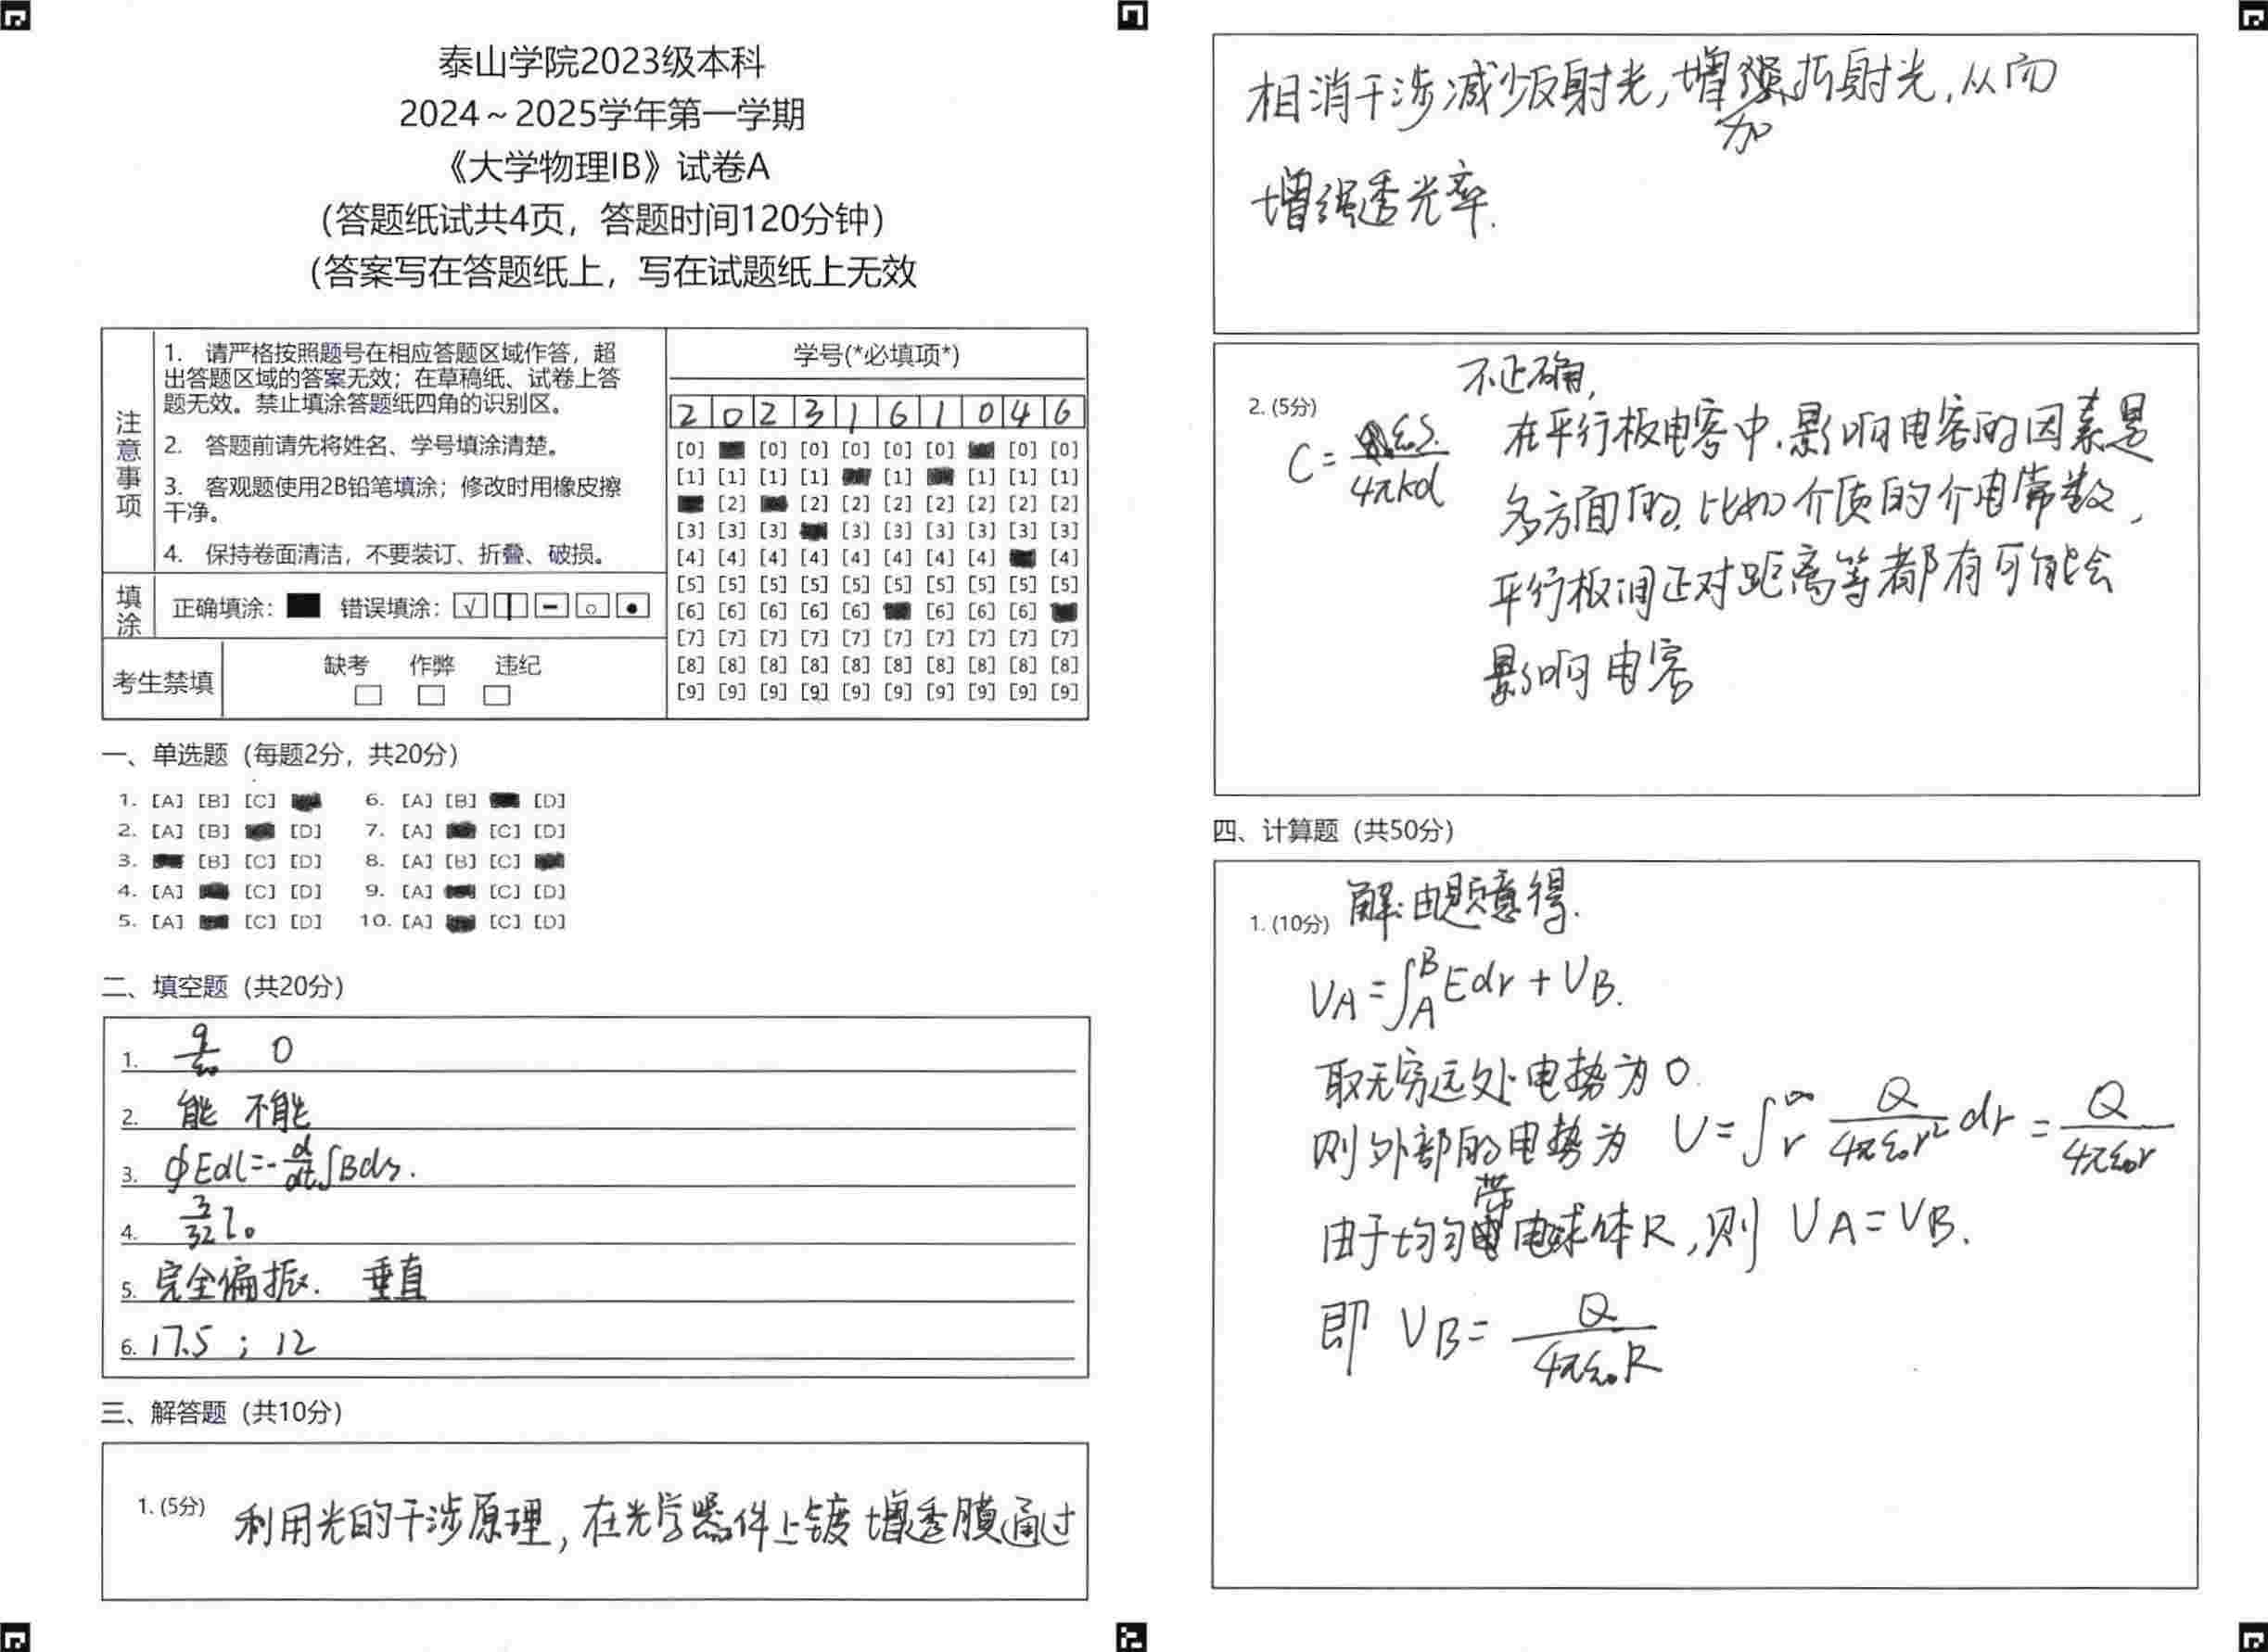 泰山学院2023级本科
2024～2025学年第一学期
《大学物理IB》试卷A
（答题纸试共4页，答题时间120分钟）
（答案写在答题纸上，写在试题纸上无效
注意事项
1. 请严格按照题号在相应答题区域作答，超
出答题区域的答案无效；在草稿纸、试卷上答
题无效。禁止填涂答题纸四角的识别区。
2. 答题前请先将姓名、学号填涂清楚。
3. 客观题使用2B铅笔填涂；修改时用橡皮擦
干净。
4. 保持卷面清洁，不要装订、折叠、破损。
填涂
正确填涂： 错误填涂：
考生禁填
缺考 作弊 违纪
学号(*必填项*)
2 0 2 3 1 6 1 0 4 6
[0] [0] [0] [0] [0] [0] [0] [0]
[1] [1] [1] [1] [1] [1] [1] [1]
[2] [2] [2] [2] [2] [2] [2] [2]
[3] [3] [3] [3] [3] [3] [3] [3] [3]
[4] [4] [4] [4] [4] [4] [4] [4] [4]
[5] [5] [5] [5] [5] [5] [5] [5] [5] [5]
[6] [6] [6] [6] [6] [6] [6] [6]
[7] [7] [7] [7] [7] [7] [7] [7] [7] [7]
[8] [8] [8] [8] [8] [8] [8] [8] [8] [8]
[9] [9] [9] [9] [9] [9] [9] [9] [9] [9]
一、单选题（每题2分，共20分）
1. [A] [B] [C] 6. [A] [B] [D]
2. [A] [B] [D] 7. [A] [C] [D]
3. [B] [C] [D] 8. [A] [B] [C]
4. [A] [C] [D] 9. [A] [C] [D]
5. [A] [C] [D] 10. [A] [C] [D]
二、填空题（共20分）
1. q/ε₀ 0
2. 能 不能
3. ∮Edl=-d/dt∫Bds.
4. 3/32 I₀
5. 完全偏振. 垂直
6. 17.5 ; 12
三、解答题（共10分）
1. (5分) 利用光的干涉原理,在光学器件上镀增透膜通过
相消干涉减少反射光,增加折射光,从而
增强透光率.
不正确,
2. (5分) 在平行板电容中.影响电容的因素是
C = εS/4πkd
多方面的.比如介质的介电常数,
平行板间正对距离等都有可能会
影响电容
四、计算题（共50分）
1. (10分) 解:由题意得.
VA=∫_A^B Edr + VB.
取无穷远处电势为0
则外部的电势为 V=∫_r^∞ Q/4πε₀r² dr = Q/4πε₀r
由于均匀带电球体R,则 VA=VB.
即 VB= Q/4πε₀R